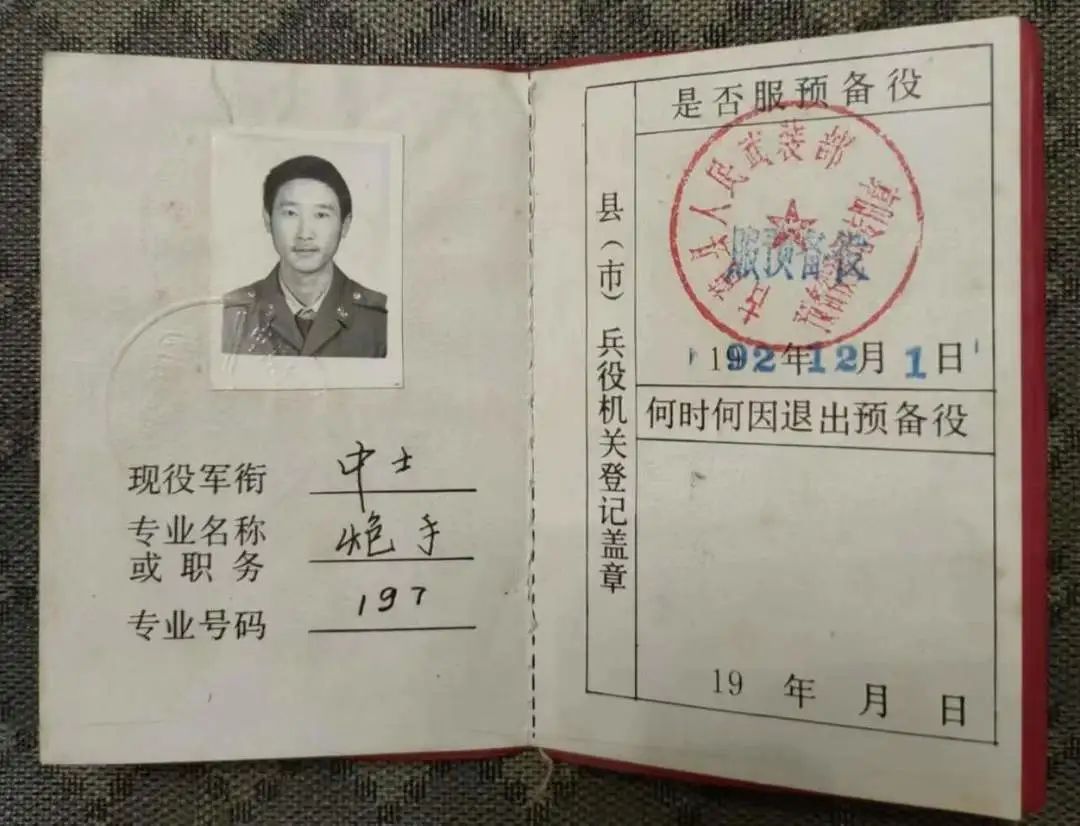 现役军衔 中士
专业名称
或职务 炮手
专业号码 197
县（市）兵役机关登记盖章
是否服预备役
县人民武装部
服预备役
1992年12月1日
何时何因退出预备役
19 年 月 日